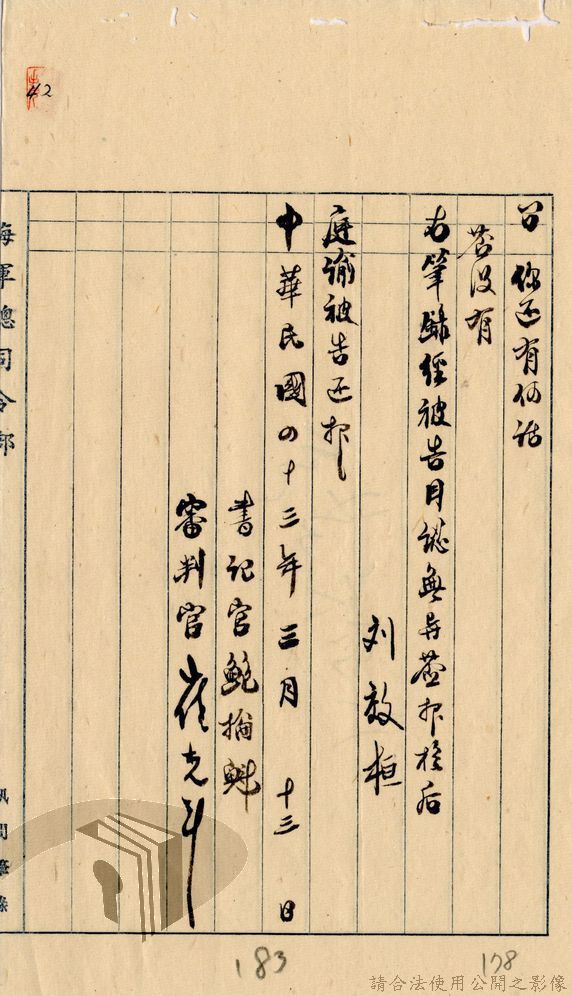 42
問 你还有何話
答没有
右筆錄經被告目認無异簽押於后
刘效桓
庭諭被告还押
中華民國四十三年三月十三日
書記官 鮑掄魁
審判官
海軍總司令部
訊問筆錄
183
178
請合法使用公開之影像